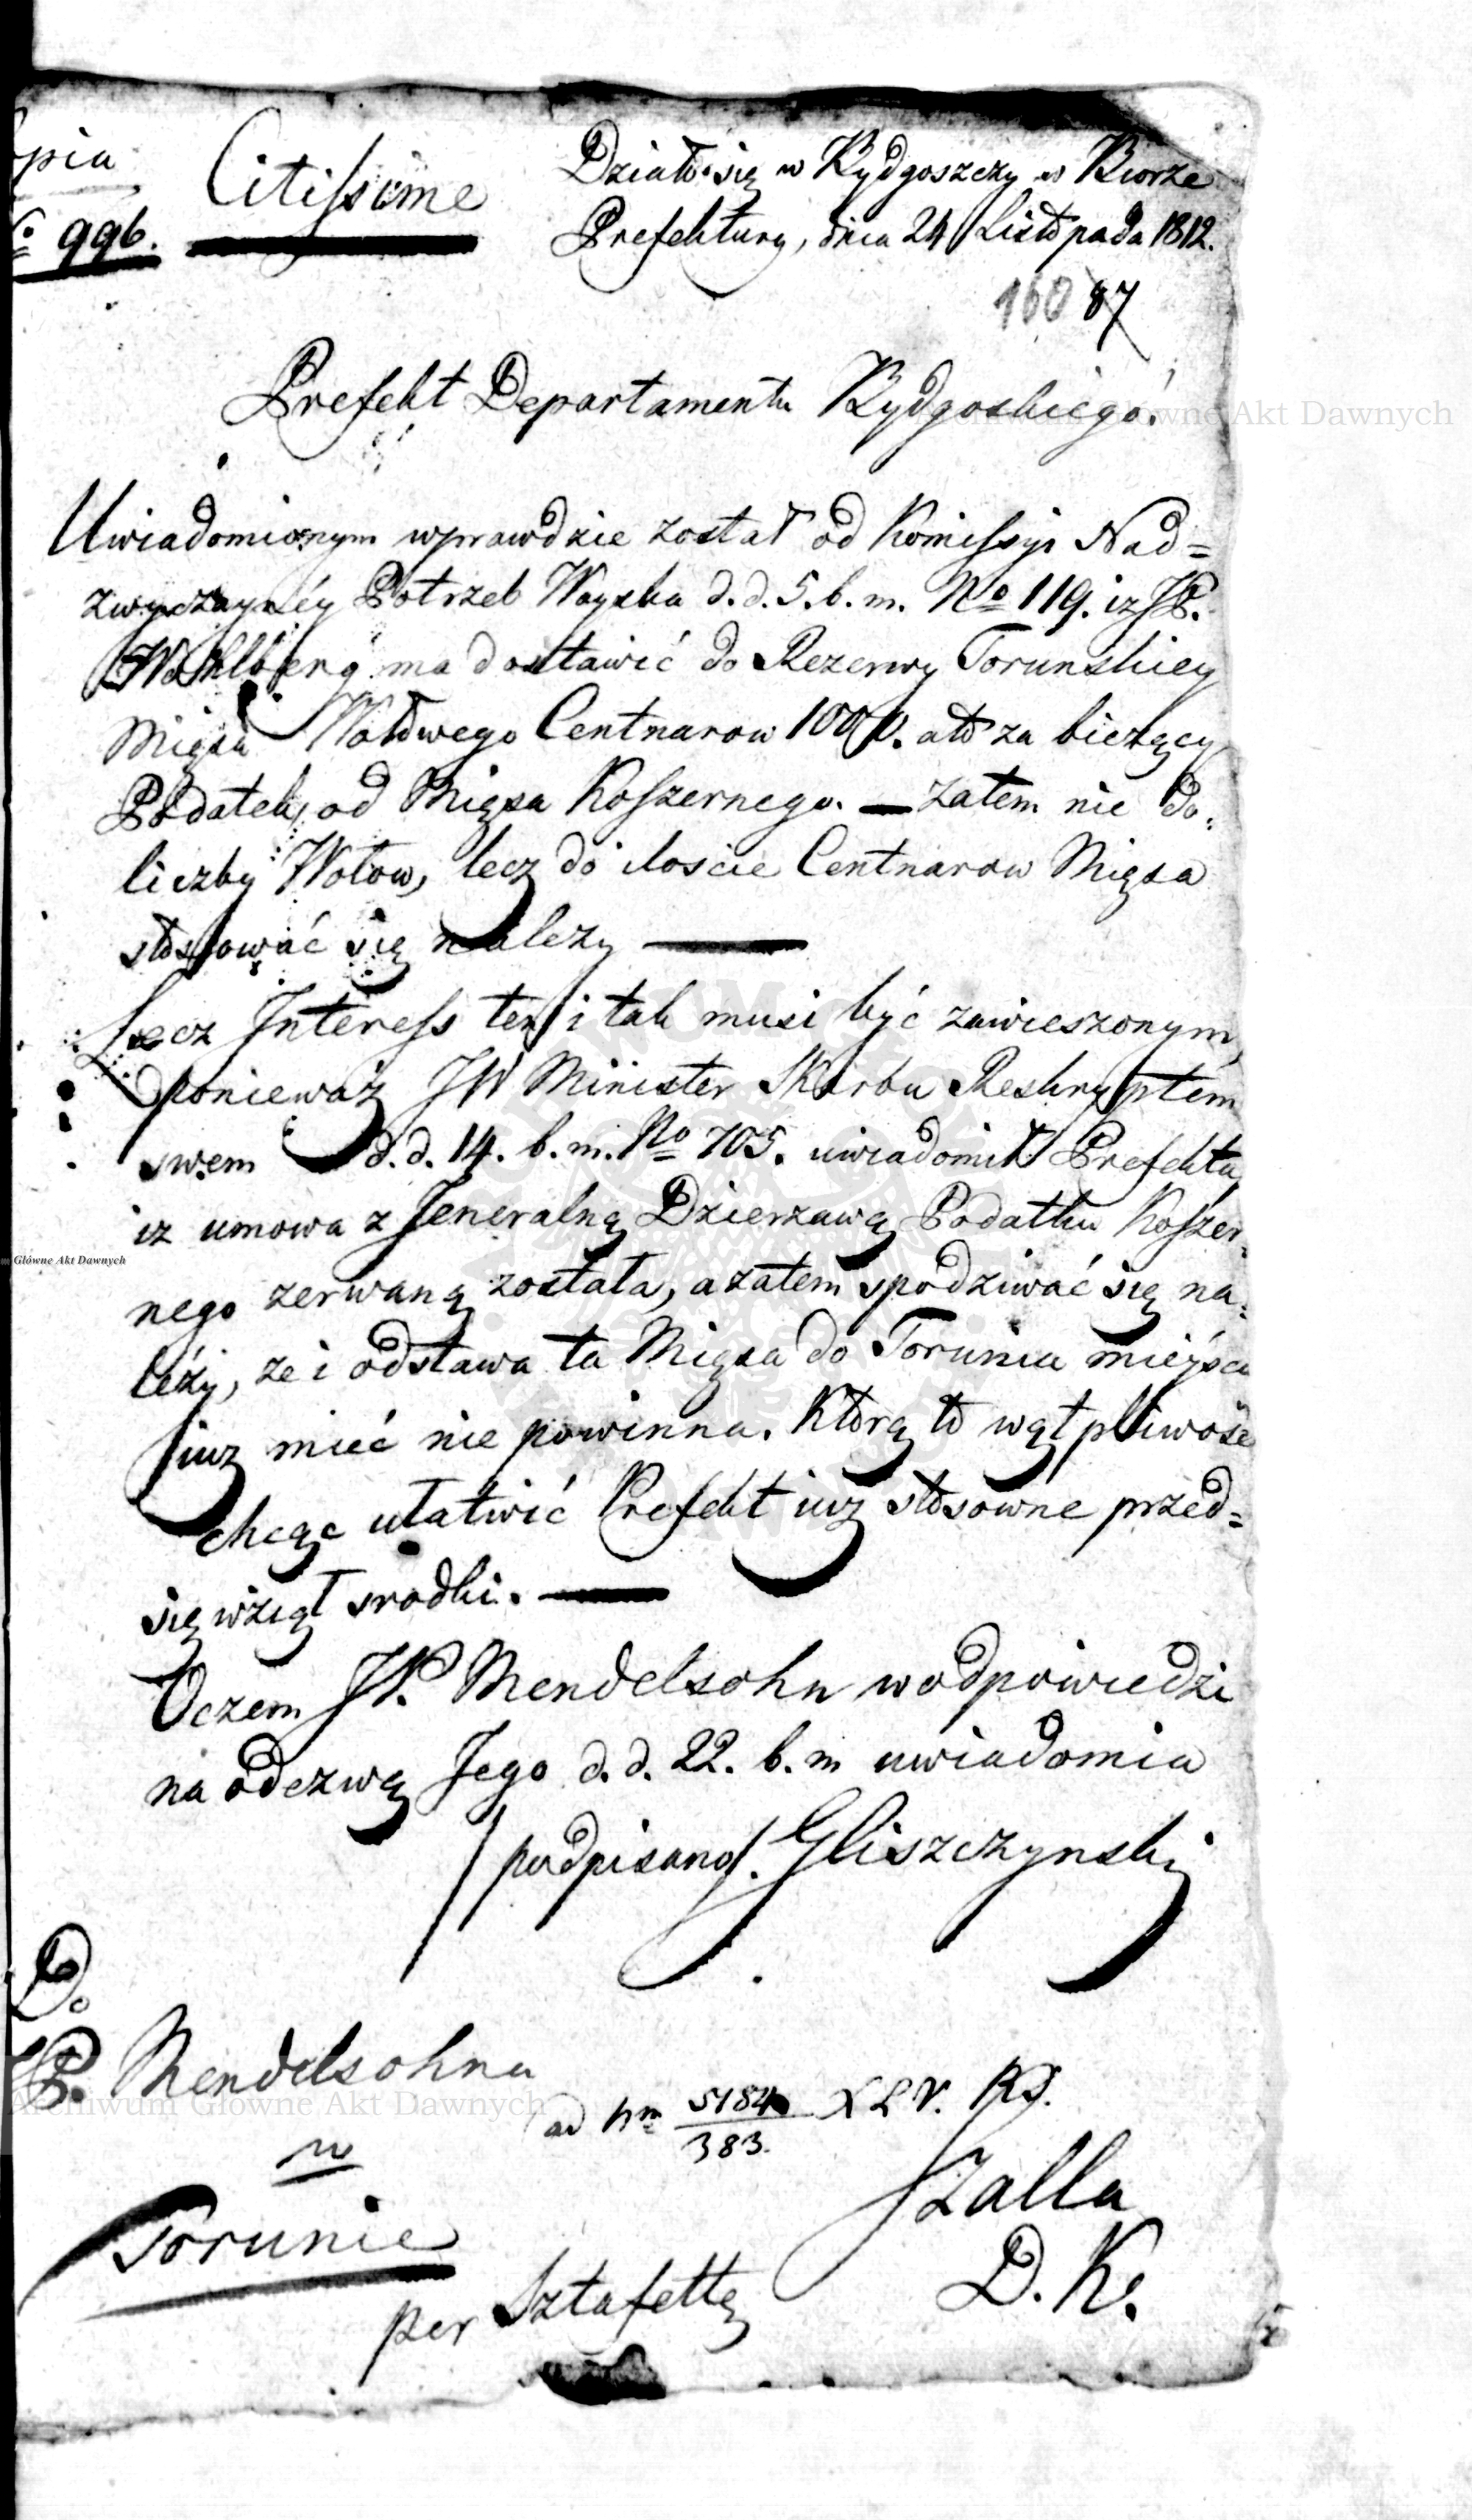 pia
Citissime
Działo się w Bydgoszczy w Biorze
No 996.
Prefektury, dnia 24 Listopada 1812.
160 87
Prefekt Departamentu Bydgoskiego.
Uwiadomionym wprawdzie został od Komissyi Nad=
zwyczayney Potrzeb Woyska d. d. 5. b. m. No 119. iz JP.
Wohlberg ma dostawić do Rezerwy Torunskiey
Mięsa Wołowego Centnarow 1000. a to za bieżący
Podatek, od Mięsa Koszernego. — Zatem nie do
liczby Wołow, lecz do iloscie Centnarow Mięsa
stosować się należy —
Lecz Interess ten i tak musi być zawieszonym,
ponieważ JW Minister Skarbu Reskryptem
swem d. d. 14. b. m. No 705. uwiadomił Prefekta
iz umowa z Jeneralną Dzierzawą Podatku Koszer=
nego zerwaną została, a zatem spodziwać się na=
leży, ze i odstawa ta Mięsa do Torunia mieysca
iuz mieć nie powinna. Którą to wątpliwość
chcąc ułatwić Prefekt iuz stosowne przed=
się wziął srodki. —
Oczem JP. Mendelsohn w odpowiedzi
na odezwę Jego d. d. 22. b. m uwiadomia
/podpisano/. Gliszczynski
Do
JP. Mendelsohna
ad Nm 5184/383.
w
Szalla
Torunie
D. K.
per Sztafettę
Archiwum Główne Akt Dawnych